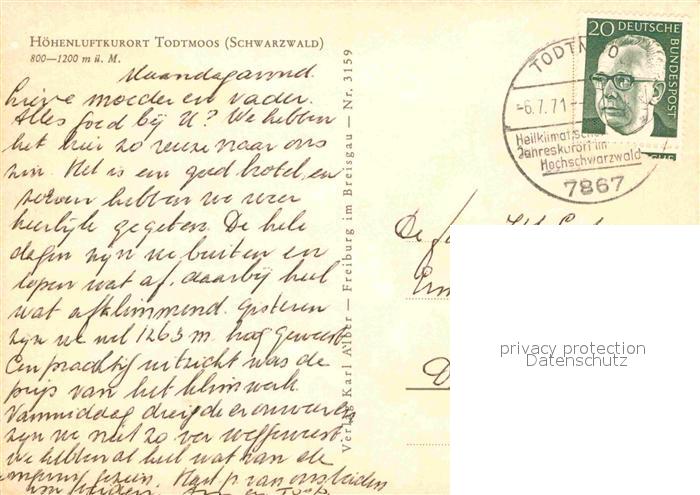 HÖHENLUFTKURORT TODTMOOS (SCHWARZWALD)
800—1200 m ü. M.
Maandagavond.
Lieve moeder en vader.
Alles goed bij U? We hebben
het hier zo reuze naar ons
zin. Het is een goed hotel, en
zeven hebben we weer
heerlijk gegeten. De hele
dagen zijn we buiten en
lopen wat af, daarbij heel
wat afklimmend. Gisteren
zijn we wel 1263 m. hoog geweest
Een prachtig uitzicht was de
prijs van het klimwerk.
Vanmiddag dreigde er onweer en
zijn we niet zo ver weggeweest.
we hebben al heel wat van de
omgeving gezien. Hart. gr. van ons beiden
Verlag Karl Alber — Freiburg im Breisgau — Nr. 3159
20 DEUTSCHE
BUNDESPOST
TODTMOO
-6.7.71-
Heilklimatischer
Jahreskurort im
Hochschwarzwald
7867
De fam.
privacy protection
Datenschutz